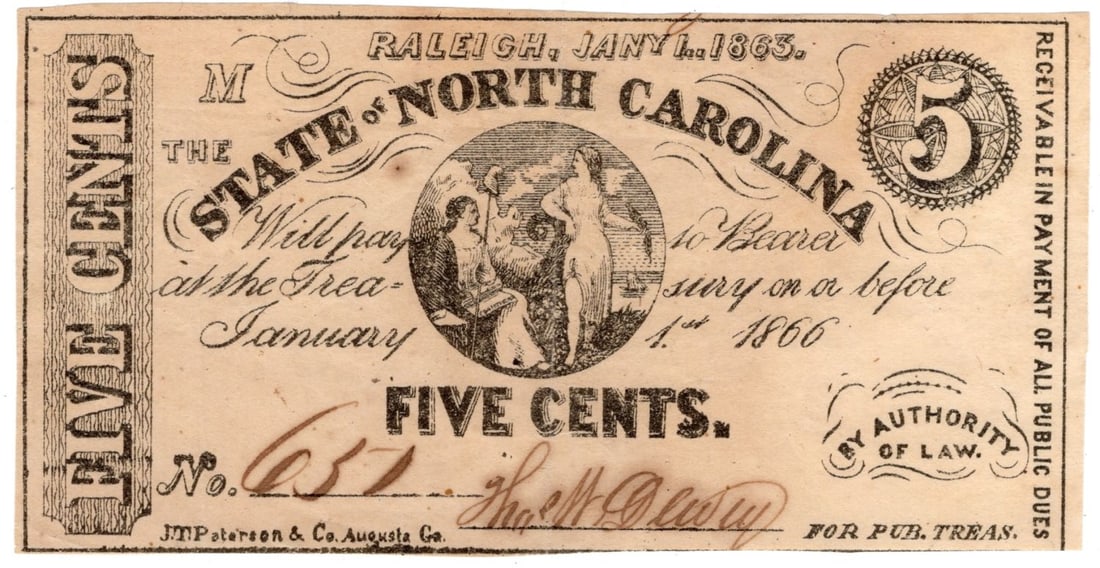 FIVE CENTS
RALEIGH, JANY 1. 1863.
M
5
THE
STATE of NORTH CAROLINA
Will pay to Bearer
at the Trea= sury on or before
January 1.st 1866
FIVE CENTS.
BY AUTHORITY
OF LAW.
No. 651
J.T.Paterson & Co. Augusta Ga.
FOR PUB. TREAS.
RECEIVABLE IN PAYMENT OF ALL PUBLIC DUES